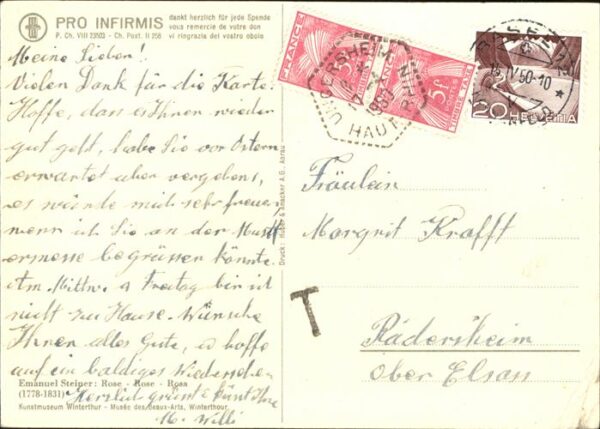 PRO INFIRMIS
P. Ch. VIII 23503 - Ch. Post. II 258
dankt herzlich für jede Spende
vous remercie de votre don
vi ringrazia del vostro obolo
Meine Lieben!
Vielen Dank für die Karte.
Hoffe, dass es Ihnen wieder
gut geht, habe Sie vor Ostern
erwartet aber vergebens,
es würde mich sehr freuen,
wenn ich Sie an der Must
ermesse begrüssen könnte.
Am Mittw. Freitag bin ich
nicht zu Hause. Wünsche
Ihnen alles Gute, hoffe
auf ein baldiges Wiedersehen
Herzlich grüsst Ihre
M. Willi
Emanuel Steiner: Rose - Rose - Rosa
(1778-1831)
Kunstmuseum Winterthur - Musée des Beaux-Arts, Winterthour
Druck: Huber & Anacker A.G. Aarau
FRANCE
3F
TIMBRE TAXE
3F
TIMBRE TAXE
HAUT RHIN
BASEL
IV 50-10
20 HELVETIA
Fräulein
Margrit Krafft
Rädersheim
Ober Elsass
T